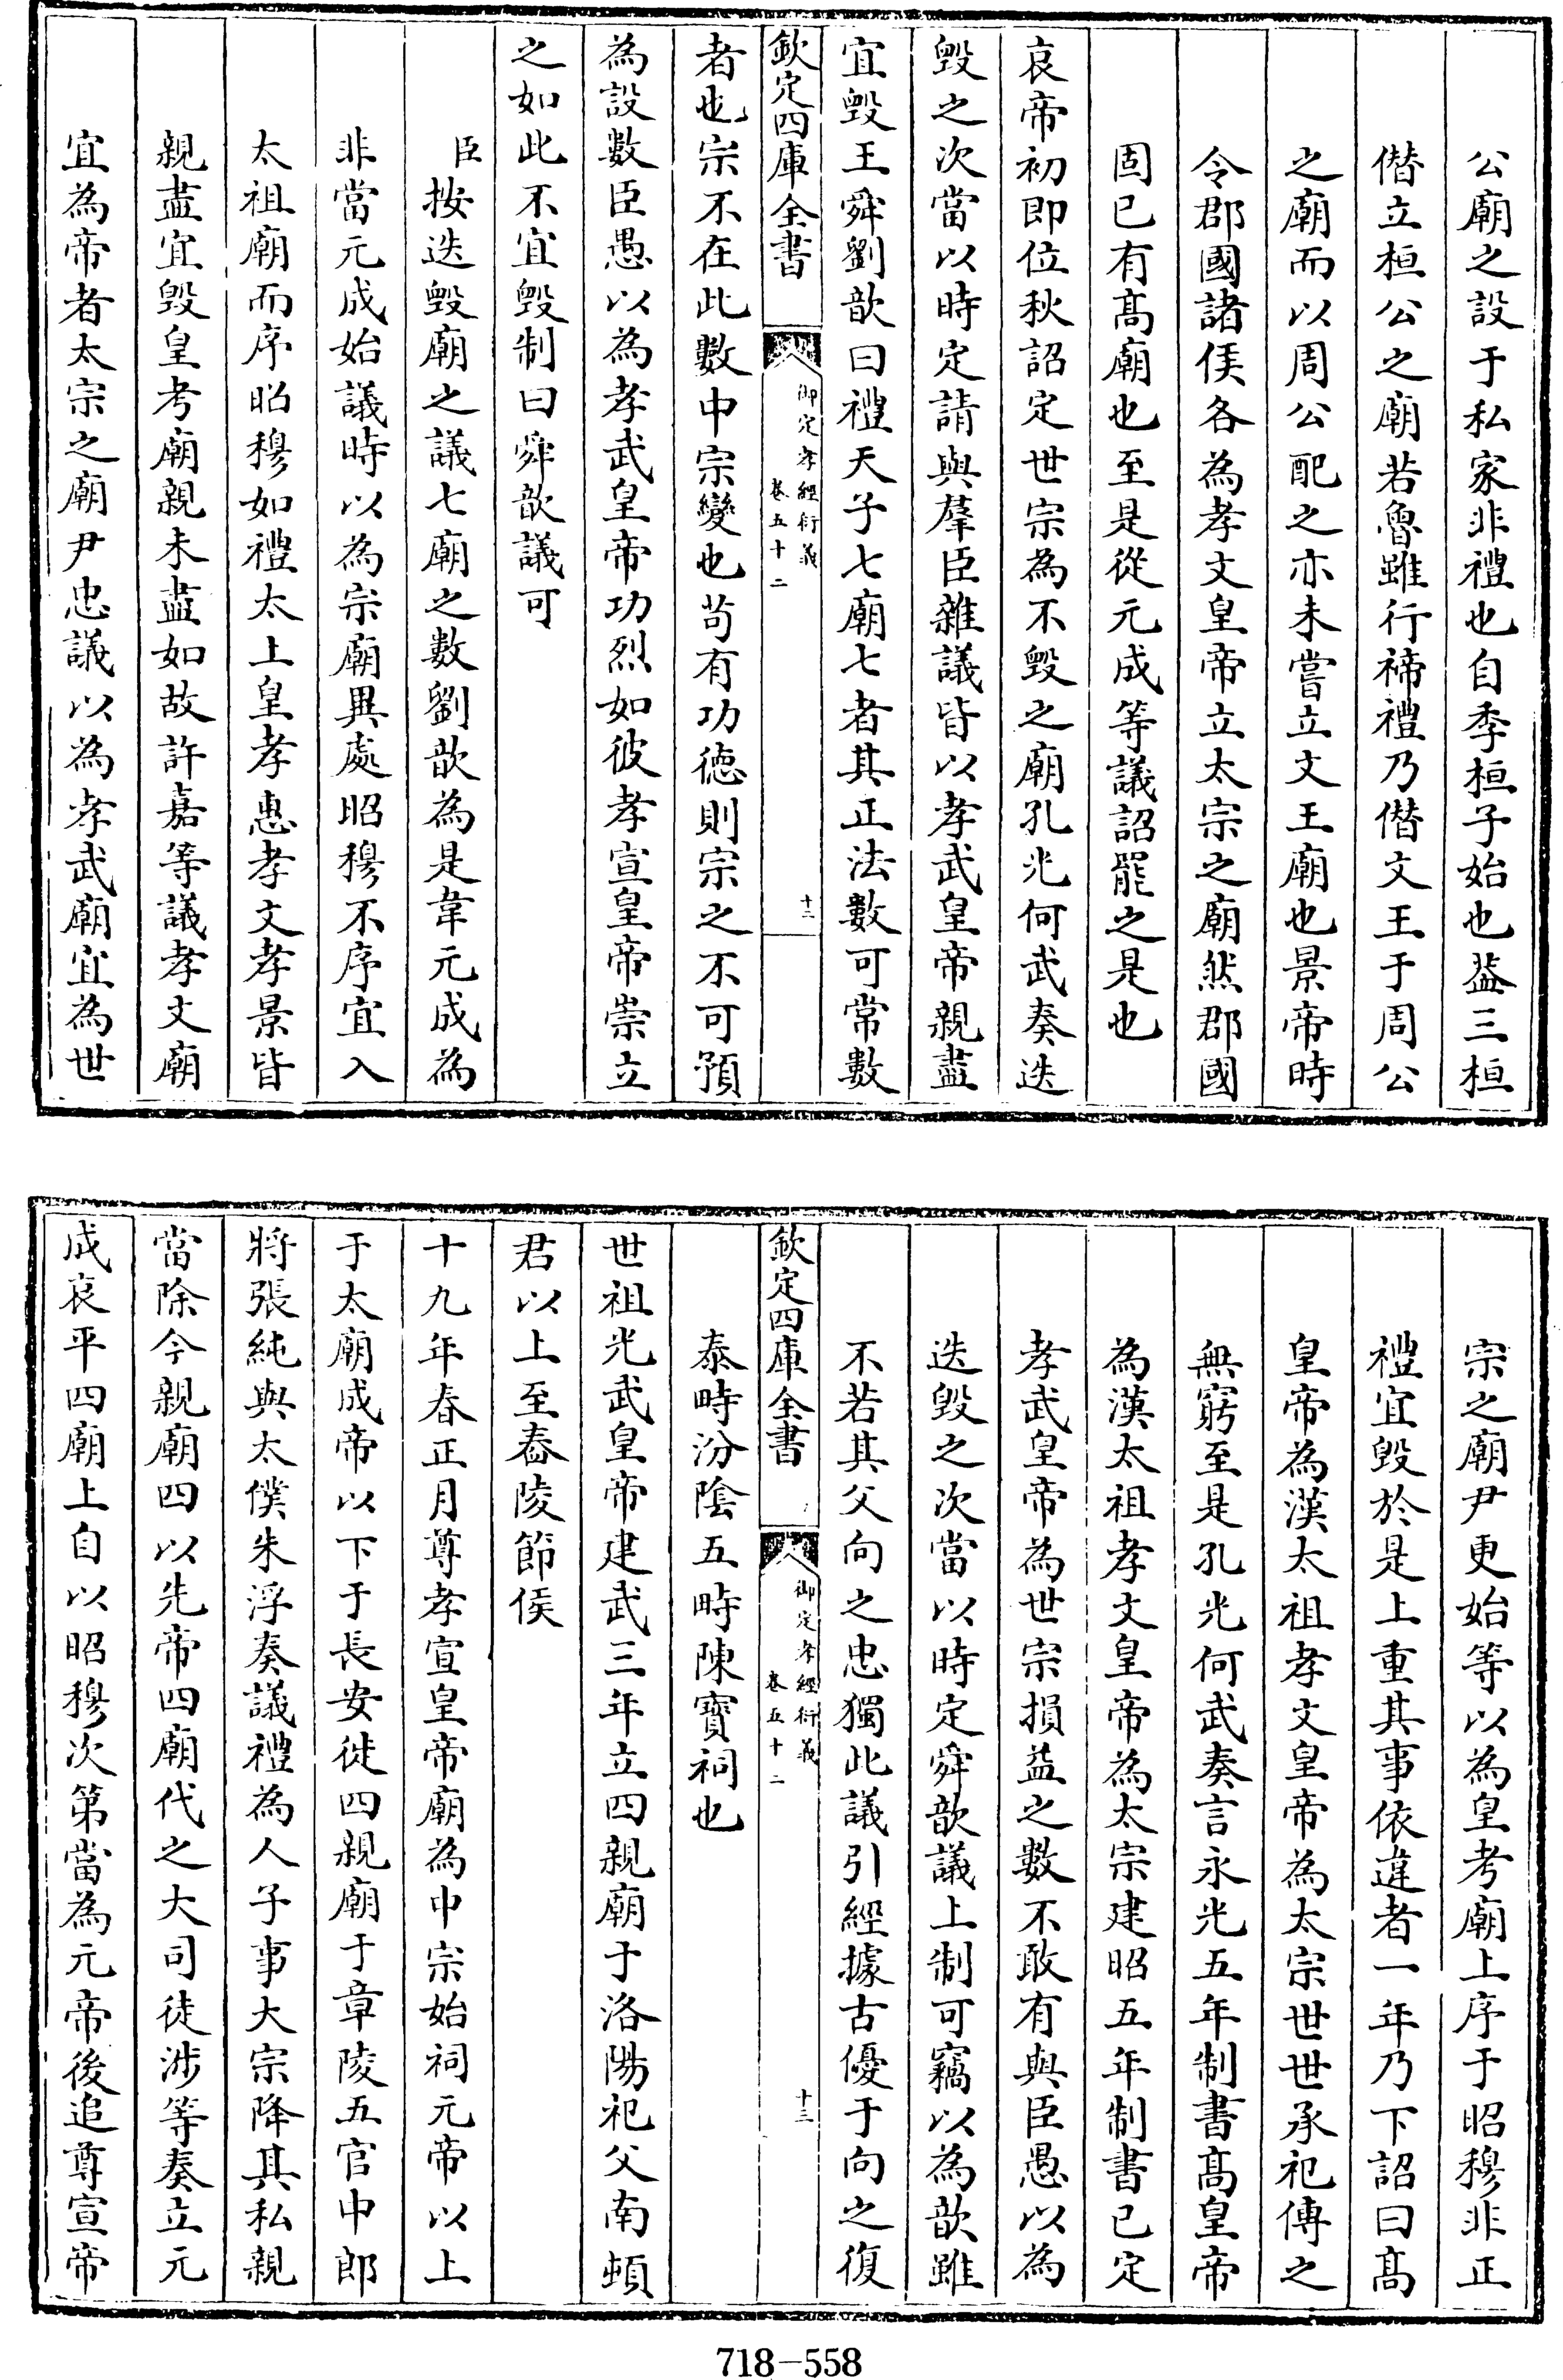 公廟之設于私家非禮也自季桓子始也葢三桓
僭立桓公之廟若魯雖行禘禮乃僭文王于周公
之廟而以周公配之亦未嘗立文王廟也景帝時
令郡國諸侯各為孝文皇帝立太宗之廟然郡國
固已有髙廟也至是從元成等議詔罷之是也
哀帝初即位秋詔定世宗為不毁之廟孔光何武奏迭
毁之次當以時定請與羣臣雜議皆以孝武皇帝親盡
宜毁王舜劉歆曰禮天子七廟七者其正法數可常數
欽定四庫全書
御定孝經衍義
卷五十二
十三
者也宗不在此數中宗變也苟有功徳則宗之不可預
為設數臣愚以為孝武皇帝功烈如彼孝宣皇帝崇立
之如此不宜毁制曰舜歆議可
臣按迭毁廟之議七廟之數劉歆為是韋元成為
非當元成始議時以為宗廟異處昭穆不序宜入
太祖廟而序昭穆如禮太上皇孝惠孝文孝景皆
親盡宜毁皇考廟親未盡如故許嘉等議孝文廟
宜為帝者太宗之廟尹忠議以為孝武廟宜為世
宗之廟尹更始等以為皇考廟上序于昭穆非正
禮宜毁於是上重其事依違者一年乃下詔曰髙
皇帝為漢太祖孝文皇帝為太宗世世承祀傳之
無窮至是孔光何武奏言永光五年制書髙皇帝
為漢太祖孝文皇帝為太宗建昭五年制書已定
孝武皇帝為世宗損益之數不敢有與臣愚以為
迭毁之次當以時定舜歆議上制可竊以為歆雖
不若其父向之忠獨此議引經據古優于向之復
欽定四庫全書
御定孝經衍義
卷五十二
十三
泰畤汾隂五畤陳寳祠也
世祖光武皇帝建武三年立四親廟于洛陽祀父南頓
君以上至舂陵節侯
十九年春正月尊孝宣皇帝廟為中宗始祠元帝以上
于太廟成帝以下于長安徙四親廟于章陵五官中郎
將張純與太僕朱浮奏議禮為人子事大宗降其私親
當除今親廟四以先帝四廟代之大司徒涉等奏立元
成哀平四廟上自以昭穆次第當為元帝後追尊宣帝
718-558